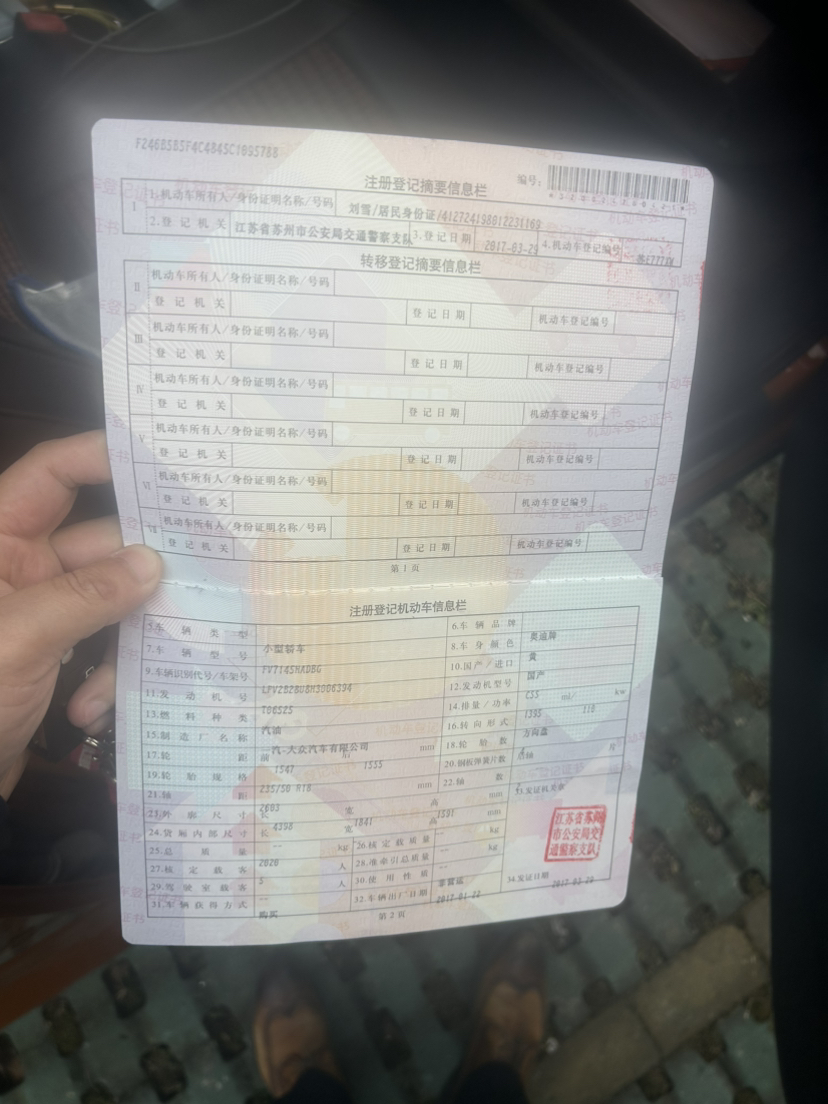 F246B5B5F4C4845C1095788
注册登记摘要信息栏
编号:
I
1.机动车所有人/身份证明名称/号码 刘雪/居民身份证/412724198012231169
2.登记机关 江苏省苏州市公安局交通警察支队 3.登记日期 2017-03-29 4.机动车登记编号
转移登记摘要信息栏
II 机动车所有人/身份证明名称/号码
登记机关 登记日期 机动车登记编号
III 机动车所有人/身份证明名称/号码
登记机关 登记日期 机动车登记编号
IV 机动车所有人/身份证明名称/号码
登记机关 登记日期 机动车登记编号
V 机动车所有人/身份证明名称/号码
登记机关 登记日期 机动车登记编号
VI 机动车所有人/身份证明名称/号码
登记机关 登记日期 机动车登记编号
VII 机动车所有人/身份证明名称/号码
登记机关 登记日期 机动车登记编号
第1页
注册登记机动车信息栏
5.车辆类型 小型轿车 6.车辆品牌 奥迪牌
7.车辆型号 FV7145HADBG 8.车身颜色 黄
9.车辆识别代号/车架号 LFV2B28U8H3006394 10.国产/进口 国产
11.发动机号 T06525 12.发动机型号 CSS
13.燃料种类 汽油 14.排量/功率 1395 ml/ 110 kw
15.制造厂名称 一汽-大众汽车有限公司 16.转向形式 方向盘
17.轮距 前 1547 后 1555 mm 18.轮胎数 4
19.轮胎规格 235/50 R18 20.钢板弹簧片数 后轴 片
21.轴距 2603 mm 22.轴数 2
23.外廓尺寸 长 4398 宽 1841 高 1591 mm 33.发证机关章
24.货厢内部尺寸 长 -- 宽 -- 高 -- mm
25.总质量 2020 kg 26.核定载质量 -- kg
27.核定载客 5 人 28.准牵引总质量 -- kg
29.驾驶室载客 -- 人 30.使用性质 非营运
31.车辆获得方式 购买 32.车辆出厂日期 2017-01-22 34.发证日期 2017-03-29
江苏省苏州
市公安局交
通警察支队
第2页